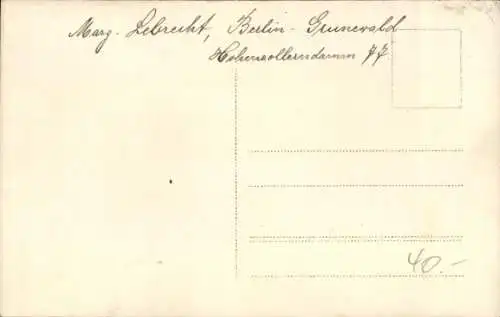 Marg. Lebrecht, Berlin-Grunewald
Hohenzollerndamm 77
40.-